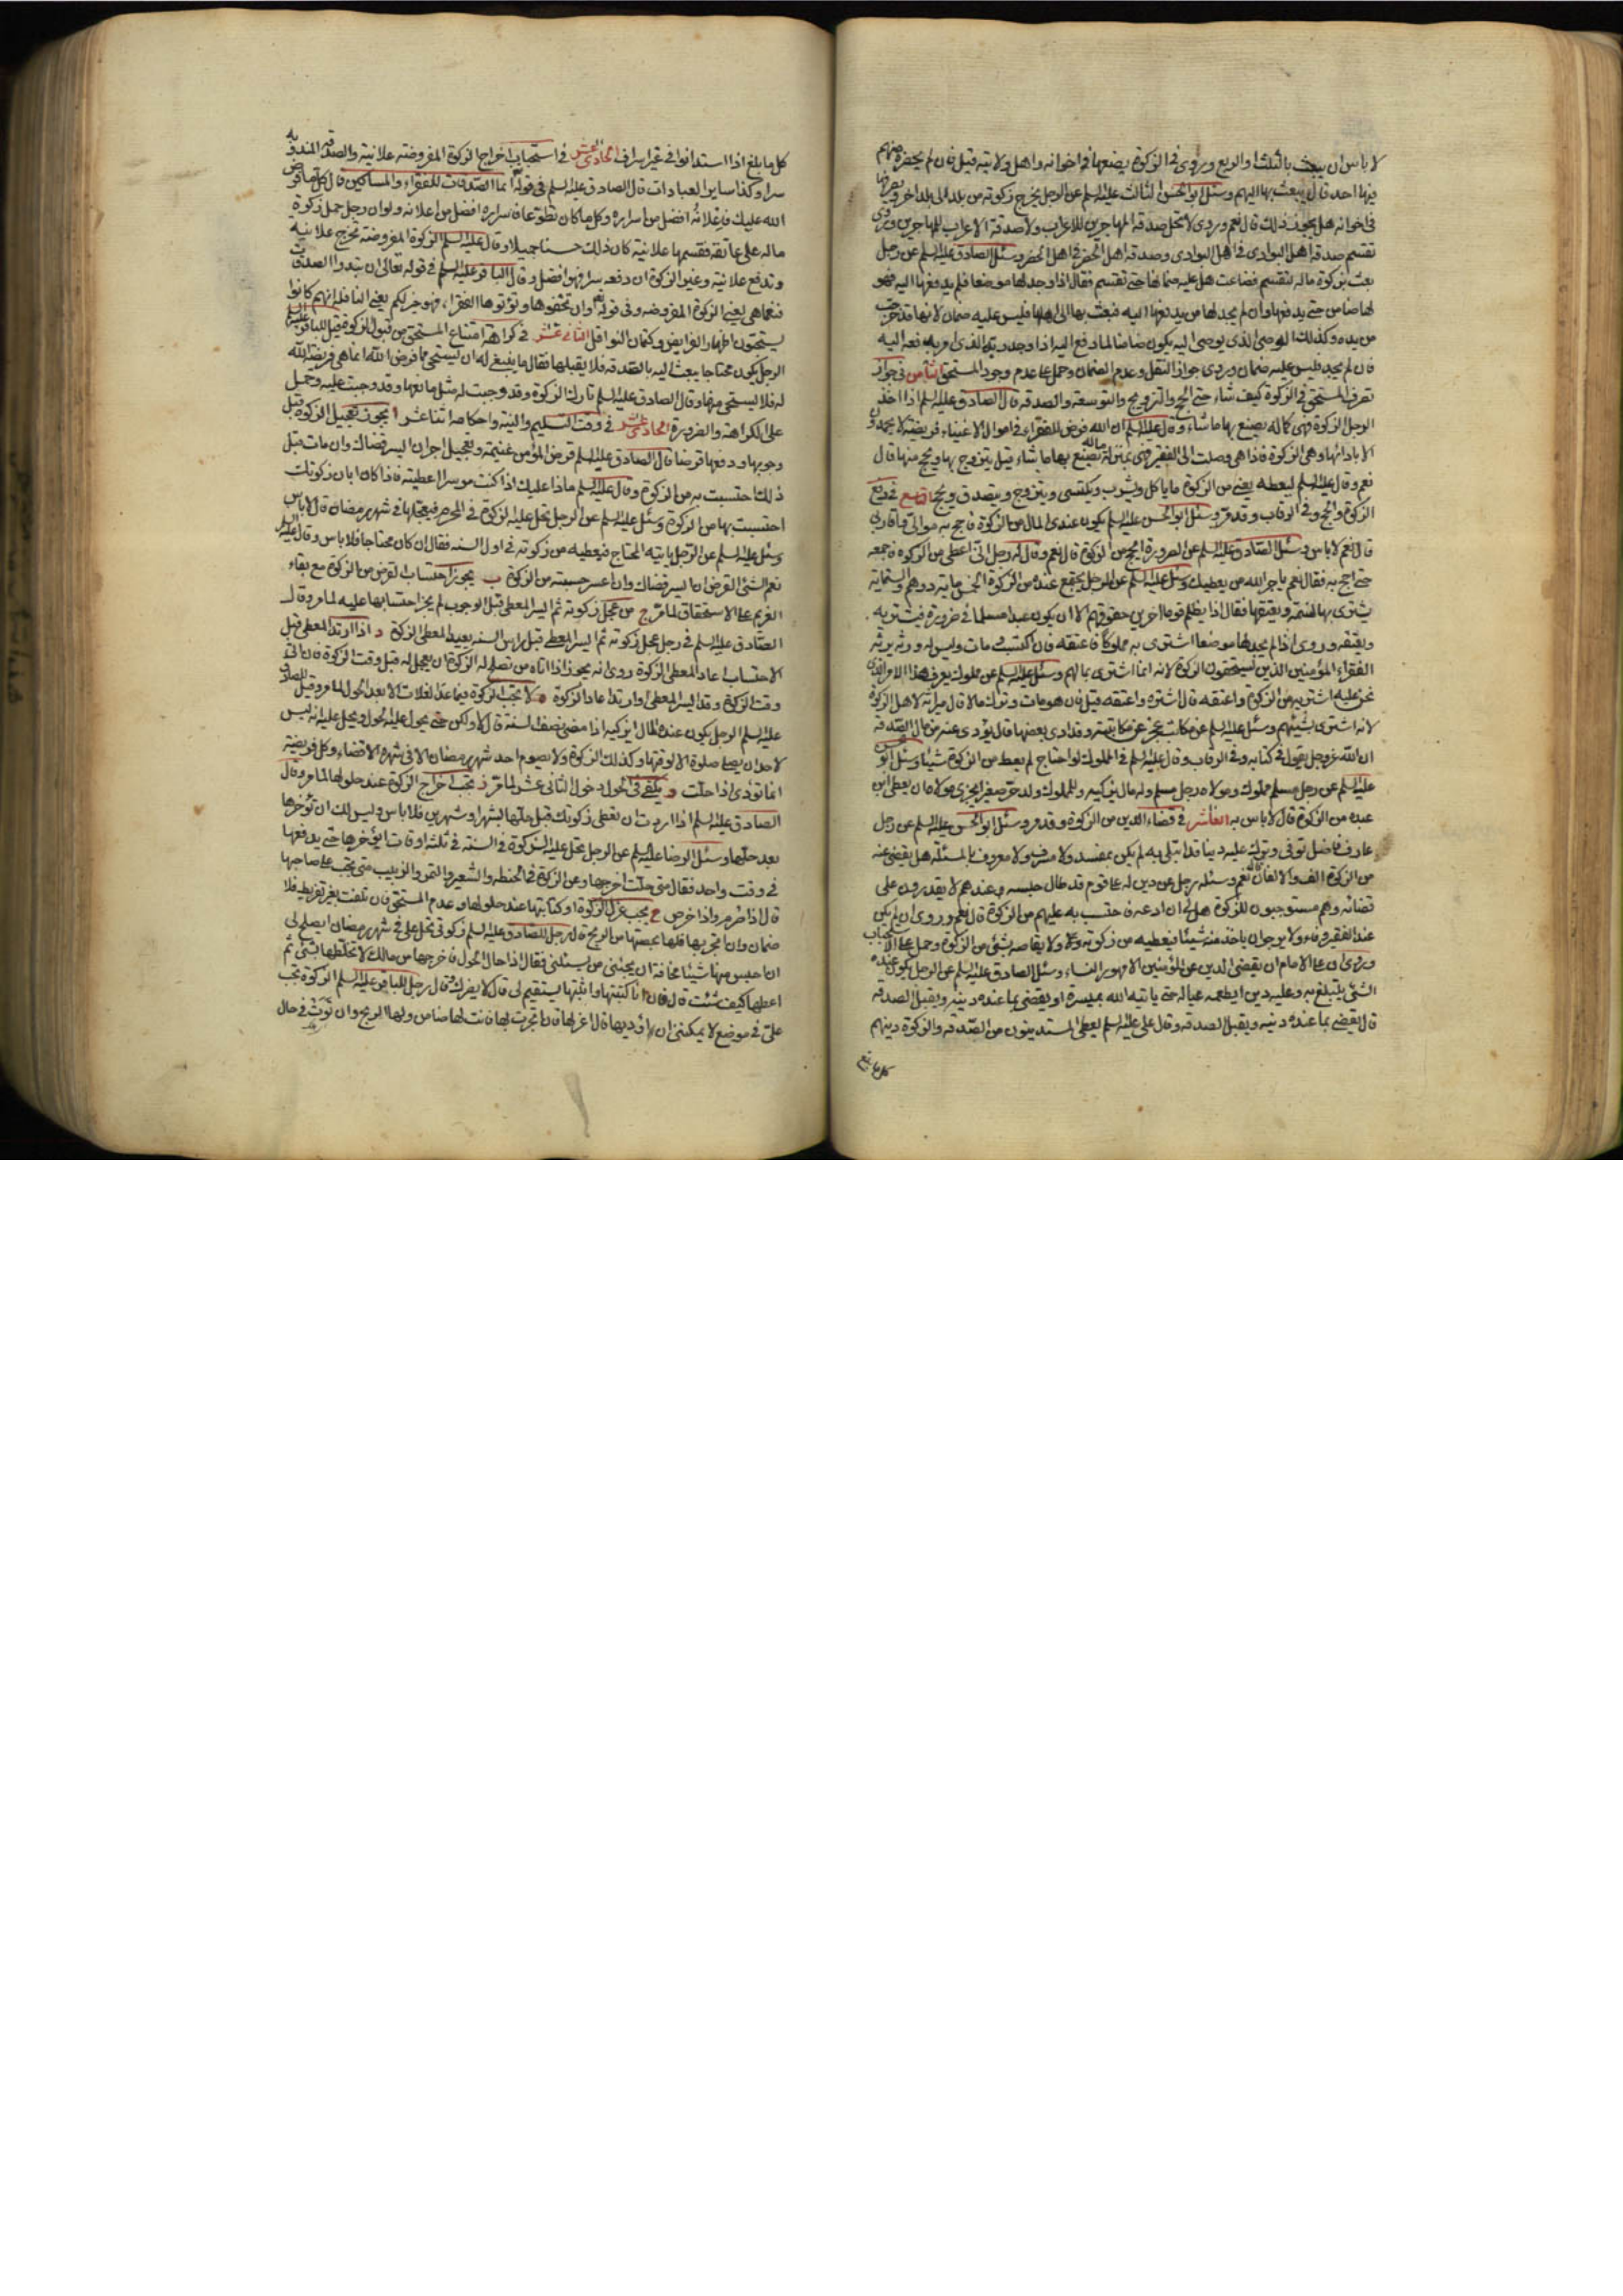 لا باس ان يبعث بالثلث او الربع وروى في الزكوة يضعها في اخوانه واهل ولايته قيل فان لم يحضره منهم
فيها احد قال يبعث بها اليهم وسئل ابو الحسن الثالث عليه السلم عن الرجل يخرج زكوته من بلد الى بلد اخر ويصرفها
في اخوانه هل يجوز ذلك قال نعم وروى لا تحل صدقة المهاجرين للاعراب ولا صدقة الاعراب للمهاجرين وروى
تقسيم صدقة اهل البوادى في اهل البوادى وصدقة اهل الحضر في اهل الحضر وسئل الصادق عليه السلم عن رجل
بعث بزكوة ماله لتقسم فضاعت هل عليه ضمانها حتى تقسم فقال اذا وجد لها موضعا فلم يدفعها اليه فهو
لها ضامن حتى يدفعها وان لم يجد لها من يدفعها اليه فبعث بها الى اهلها فليس عليه ضمان لانها قد خرجت
من يده وكذلك الوصى الذى يوصى اليه يكون ضامنا لما دفع اليه اذا وجد ربه الذى امر بدفعه اليه
فان لم يجد فليس عليه ضمان وروى جواز النقل وعدم الضمان وحمل على عدم وجود المستحق الثامن في جواز
تصرف المستحق في الزكوة كيف شاء حتى الحج والتزويج والتوسعة والصدقة قال الصادق عليه السلم اذا اخذ
الرجل الزكوة فهى كماله يصنع بها ما شاء وقال عليه السلم ان الله فرض للفقراء في اموال الاغنياء فريضة لا يحمدون
الا بادائها وهى الزكوة فاذا هى وصلت الى الفقير فهى بمنزلة ماله يصنع بها ما يشاء قيل يتزوج بها ويحج منها قال
نعم وقال عليه السلم ليعطه يعنى من الزكوة ما ياكل ويشرب ويكتسى ويتزوج ويتصدق ويحج التاسع في دفع
الزكوة والحج وفي الرقاب وقد مر وسئل ابو الحسن عليه السلم يكون عندى المال من الزكوة فاحج به موالى واقاربى
قال نعم لا باس وسئل الصادق عليه السلم عن الصرورة ايحج من الزكوة قال نعم وقال له رجل انى اعطى من الزكوة فاجمعه
حتى احج به فقال نعم ياجر الله من يعطيك وسئل عليه السلم عن الرجل يجتمع عنده من الزكوة الخمسمايه درهم والستمايه
يشترى بها النسمة ويعتقها فقال اذا يظلم قوما اخرين حقوقهم الا ان يكون عبدا مسلما في ضرورة فيشتريه
ويعتقه وروى اذا لم يجد لها موضعا اشترى به مملوكا فاعتقه فان اكتسب مات وليس له ورثه يرثه
الفقراء المؤمنين الذين يستحقون الزكوة لانه انما اشترى بمالهم وسئل عليه السلم عن مملوك يعرف هذا الامر الذى
نحن عليه اشتريه من الزكوة واعتقه قال اشتره واعتقه قيل فان هو مات وترك مالا قال ميراثه لاهل الزكوة
لانه اشترى بسهمهم وسئل عليه السلم عن مكاتب عجز عن مكاتبته وقد ادى بعضها قال يؤدى عنه من مال الصدقة
ان الله عز وجل يقول في كتابه وفي الرقاب وقال عليه السلم في المملوك لو احتاج لم يعط من الزكوة شيئا وسئل ابو الحسن
عليه السلم عن رجل مسلم مملوك ومولاه رجل مسلم وله مال يزكيه وللمملوك ولد حر صغير ايجزى مولاه ان يعطى ابن
عبده من الزكوة قال لا باس به العاشر في قضاء الدين من الزكوة وقد مر وسئل ابو الحسن عليه السلم عن رجل
عارف فاضل توفى وترك عليه دينا قد ابتلى به لم يكن بمفسد ولا مسرف ولا معروف بالمسئلة هل يقضى عنه
من الزكوة الالف والالفان قال نعم وسئله رجل عن دين له على قوم قد طال حبسه وعندهم لا يقدرون على
قضائه وهم مستوجبون للزكوة هل لى ان ادعه فاحتسب به عليهم من الزكوة قال نعم وروى ان لم يكن
عند الفقير وفاء ولا يرجو ان ياخذ منه شيئا فيعطيه من زكوته ولا يقاصه بشئ من الزكوة وحمل على الاستحباب
وروى ان على الامام ان يقضى الدين عن المؤمنين الا مهور النساء وسئل الصادق عليه السلم عن الرجل يكون عنده
الشئ يتبلغ به وعليه دين ايطعمه عياله حتى ياتيه الله بميسرة او يقضى بما عنده دينه ويقبل الصدقه
قال يقضى بما عنده دينه ويقبل الصدقه وقال على عليه السلم يعطى المستدينون من الصدقه والزكوة دينهم
كل ما بلغ
كل ما بلغ اذا استدانوا في غير اسراف الحادى عشر في استحباب اخراج الزكوة المفروضه علانية والصدقه المندوبه
سرا وكذا ساير العبادات قال الصادق عليه السلم في قوله انما الصدقات للفقراء والمساكين قال كلما فرض
الله عليك فاعلانه افضل من اسراره وكلما كان تطوعا فاسراره افضل من اعلانه ولو ان رجل حمل زكوة
ماله على عاتقه فقسمها علانية كان ذلك حسنا جميلا وقال عليه السلم الزكوة المفروضة تخرج علانيه
وتدفع علانيه وغير الزكوة ان دفعه سرا فهو افضل وقال الباقر عليه السلم في قوله تعالى ان تبدوا الصدقات
فنعما هى يعنى الزكوة المفروضه وفي قوله وان تخفوها وتؤتوها الفقراء فهو خير لكم يعنى النافله انهم كانوا
يستحبون اظهار الفرايض وكتمان النوافل الثانى عشر في كراهة امتناع المستحق من قبول الزكوة قيل للباقر عليه السلم
الرجل يكون محتاجا يبعث اليه بالصدقه فلا يقبلها فقال ما ينبغى له ان يستحى مما فرض الله انما هى فريضة الله
له فلا يستحى منها وقال الصادق عليه السلم تارك الزكوة وقد وجبت له مثل مانعها وقد وجبت عليه وحمل
على الكراهة والضرورة الحادى عشر في وقت التسليم والنية واحكامه اثنا عشر ا يجوز تعجيل الزكوة قبل
وجوبها ودفعها قرضا قال الصادق عليه السلم قرض المؤمن غنيمة وتعجيل اجر ان ايسر قضاك وان مات قبل
ذلك احتسبت به من الزكوة وقال عليه السلم ماذا عليك اذا كنت موسرا اعطيته فاذا كان ابان زكوتك
احتسبت بها من الزكوة وسئل عليه السلم عن الرجل تحل عليه الزكوة في المحرم فيعجلها في شهر رمضان قال لا باس
وسئل عليه السلم عن الرجل ياتيه المحتاج فيعطيه من زكوته في اول السنه فقال ان كان محتاجا فلا باس وقال عليه السلم
نعم الشئ القرض ان ايسر قضاك وان اعسر حسبته من الزكوة ب يجوز احتساب القرض من الزكوة مع بقاء
الغريم على الاستحقاق لما مر ج من عجل زكوته ثم ايسر المعطى قبل الوجوب لم يجز احتسابها عليه لما مر وقال
الصادق عليه السلم في رجل عجل زكوته ثم ايسر المعطى قبل راس السنه يعيد المعطى الزكوة د اذا ارتد المعطى قبل
الاحتساب اعاد المعطى الزكوة روى انه يجوز اذا اتاه من تصلح له الزكوة ان يعجل له قبل وقت الزكوة فان اتى
وقت الزكوة وقد ايسر المعطى او ارتد اعاد الزكوة ه لا تجب الزكوة فيما عدا الغلات الا بعد الحول لما مر وقيل للصادق
عليه السلم الرجل يكون عنده المال ايزكيه اذا مضى نصف السنة قال لا ولكن حتى يحول عليه الحول ويحل عليه انه ليس
لاحد ان يصلى صلوة الا لوقتها وكذلك الزكوة ولا يصوم احد شهر رمضان الا في شهره الا قضاء وكل فريضة
انما تؤدى اذا حلت و يكفى في الحول دخول الثانى عشر لما مر ز تجب اخراج الزكوة عند حلولها لما مر وقال
الصادق عليه السلم اذا اردت ان تعطى زكوتك قبل حلها بشهر او شهرين فلا باس وليس لك ان تؤخرها
بعد حلها وسئل الرضا عليه السلم عن الرجل تحل عليه الزكوة في السنة في ثلثة اوقات ايؤخرها حتى يدفعها
في وقت واحد فقال متى حلت اخرجها وعن الزكوة في الحنطه والشعير والتمر والزبيب متى تجب على صاحبها
قال اذا صرم واذا خرص ح يجب عزل الزكوة او كتابتها عند حلولها وعدم المستحق فان تلفت بغير تفريط فلا
ضمان وان اتجر بها فلها بحصتها من الربح قال رجل للصادق عليه السلم زكوتى تحل على في شهر رمضان ايصلح لى
ان احبس منها شيئا مخافة ان يجيئنى من يسئلنى فقال اذا حال الحول فاخرجها من مالك لا تخلطها بشئ ثم
اعطها كيف شئت قال قلت فان انا كتبتها واثبتها يستقيم لى قال لا يضرك وقال رجل للباقر عليه السلم الزكوة تجب
على في موضع لا يمكننى ان اؤديها قال اعزلها فان اتجرت بها فانت لها ضامن ولها الربح وان تويت في حال